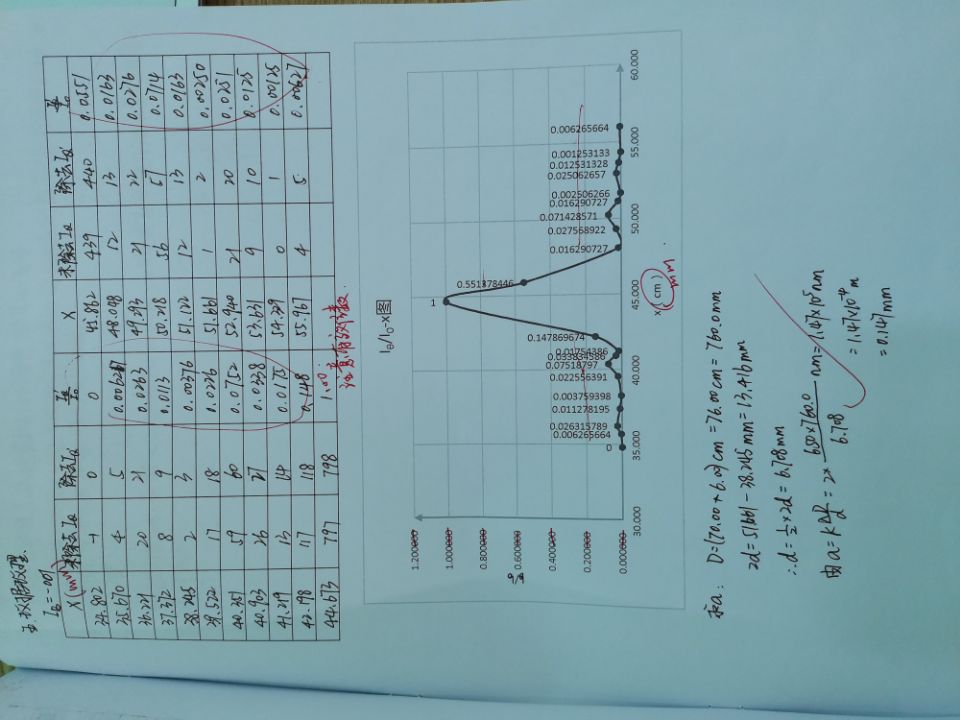 五. 数据处理.
I₀=-001
X(mm) 未除去I₀ 除去I₀ X 未除去I₀ 除去I₀
34.802 -1 0 0 41.862 439 440 0.0551
35.670 4 5 48.048 12 13 0.0163
36.221 20 21 0.0263 49.293 21 22 0.0276
37.372 8 9 0.0113 50.218 56 57 0.0714
38.245 2 3 0.00376 51.122 12 13 0.0163
39.522 17 18 0.0226 51.661 1 2 0.00250
40.351 59 60 0.0752 52.940 21 20 0.0251
40.903 26 27 0.0338 53.631 9 10 0.0125
41.219 13 14 0.0175 54.329 0 1 0.00125
42.198 117 118 0.148 55.967 4 5 0.00627
44.673 797 798 1.00
注意有效数.
Iθ/I₀-X图
1.200000
1.000000
0.800000
0.600000
0.400000
0.200000
0.000000
30.000 35.000 40.000 45.000 50.000 55.000 60.000
x (cm)
mm
0
0.006265664
0.026315789
0.011278195
0.003759398
0.022556391
0.07518797
0.033834586
0.01754386
0.147869674
1
0.551378446
0.016290727
0.027568922
0.071428571
0.016290727
0.002506266
0.025062657
0.012531328
0.001253133
0.006265664
求a: D=(70.00+6.00)cm=76.00cm=760.0mm
2d=51.661-38.245mm=13.416mm
∴d=½×2d=6.708mm
由a=k = 2× 650×760.0 / 6.708 nm=1.47×10⁵nm
=1.47×10⁻⁴m
=0.147mm